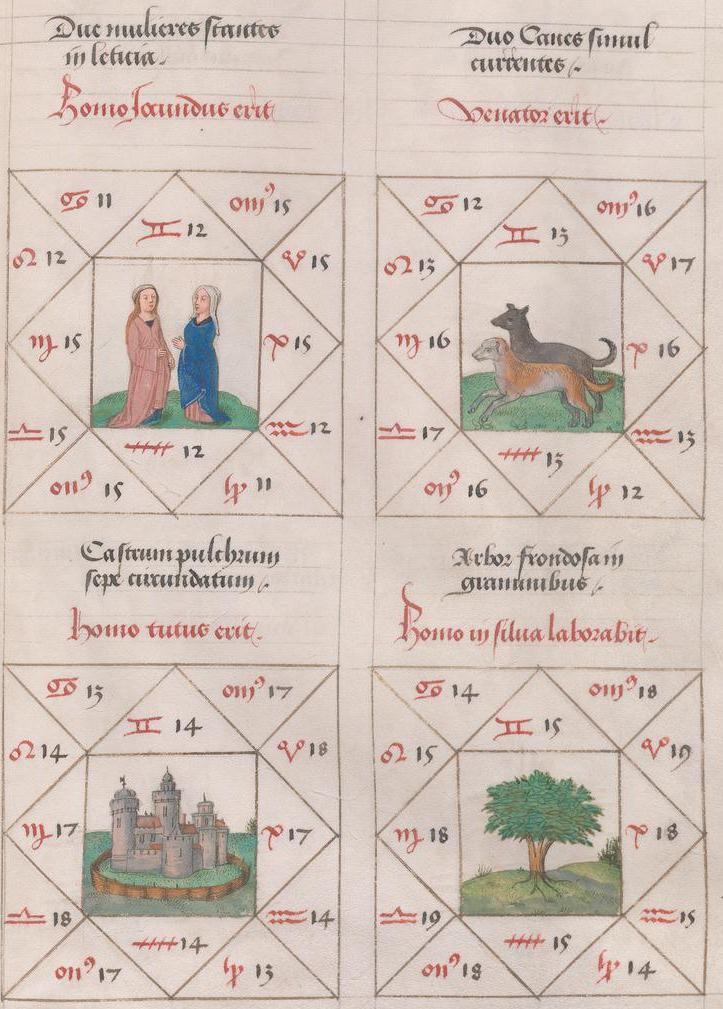 Due mulieres stantes
in leticia.
Homo Jocundus erit
♋ 11
♊ 12
♉ 15
♌ 12
♈ 15
♍ 15
♓ 15
♎ 15
♒ 12
♐ 12
♏ 15
♑ 11
Duo Canes simul
currentes
Venator erit
♋ 12
♊ 13
♉ 16
♌ 13
♈ 17
♍ 16
♓ 16
♎ 17
♒ 13
♐ 13
♏ 16
♑ 12
Castrum pulchrum
sepe circundatum
homo tutus erit.
♋ 13
♊ 14
♉ 17
♌ 14
♈ 18
♍ 17
♓ 17
♎ 18
♒ 14
♐ 14
♏ 17
♑ 13
Arbor frondosa in
graminibus
Homo in silua laborabit
♋ 14
♊ 15
♉ 18
♌ 15
♈ 19
♍ 18
♓ 18
♎ 19
♒ 15
♐ 15
♏ 18
♑ 14